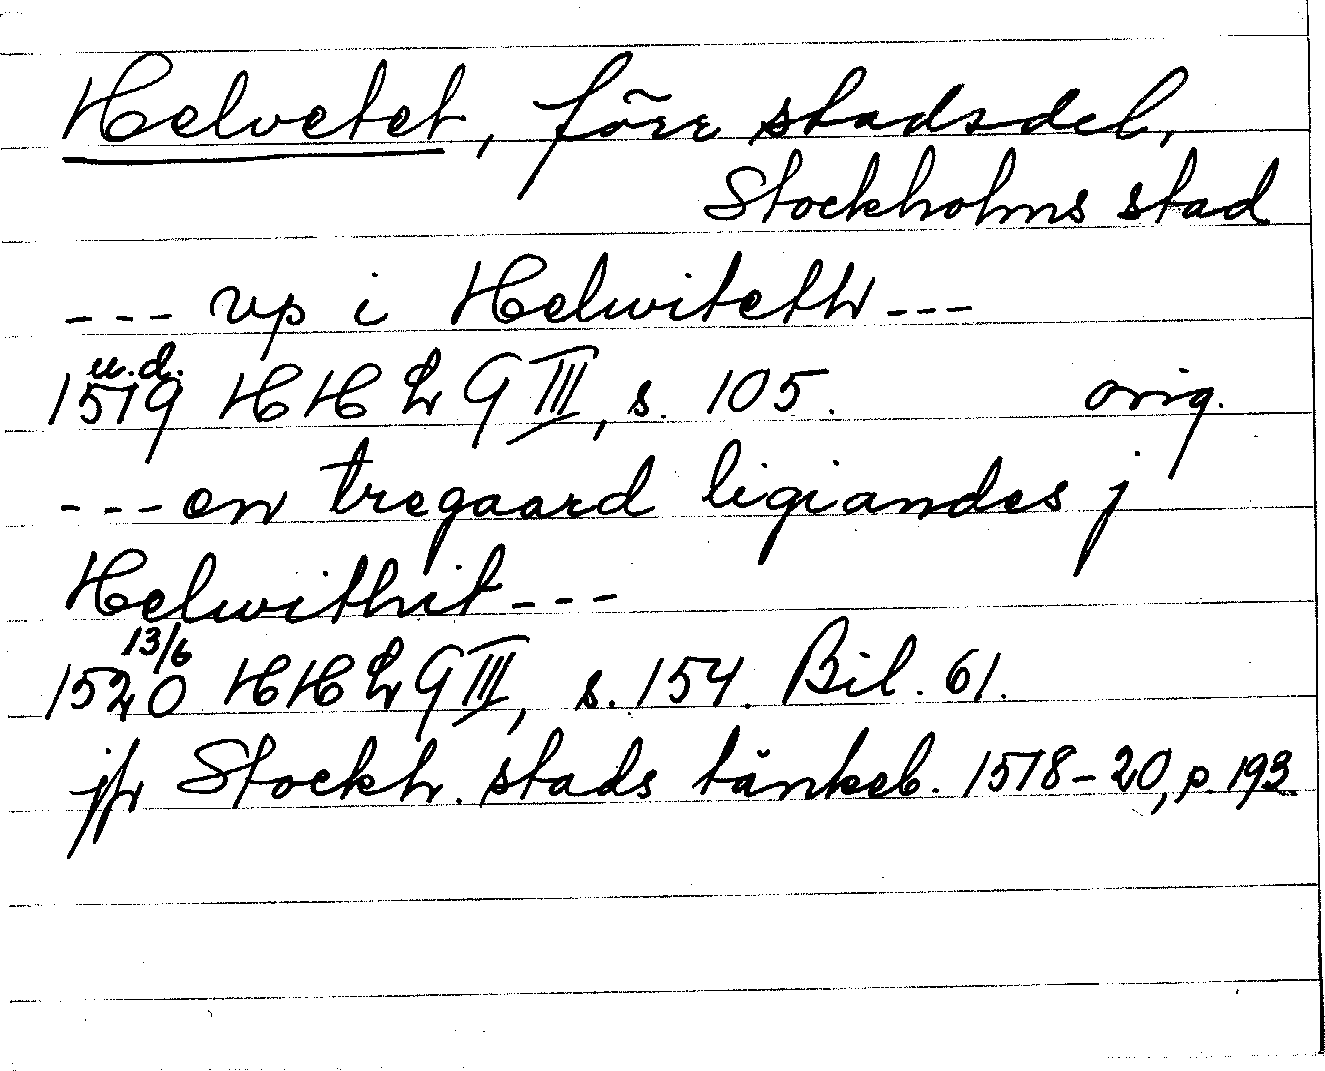 Helvetet, förr stadsdel,
Stockholms stad
--- vp i Helwiteth ---
u.d.
1519 HH Lr G III, s. 105. orig.
--- en tregaard ligiandes j
Helwithit ---
13/6
1520 HH Lr G III, s. 154. Bil. 61.
jfr Stockh. stads tänkeb. 1518-20, p. 193